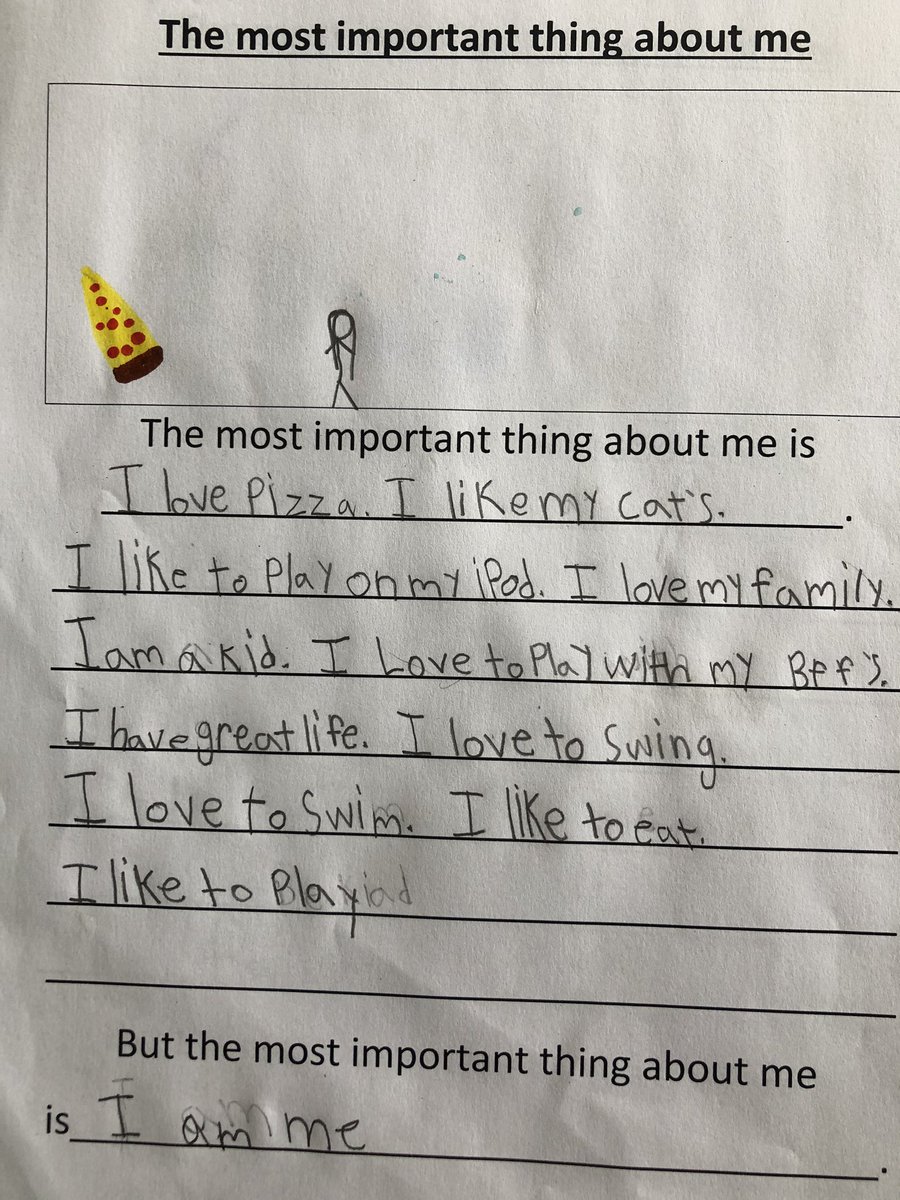 The most important thing about me
The most important thing about me is
I love Pizza. I like my cat's. .
I like to Play on my iPod. I love my family.
I am a kid. I Love to Play with my Bff's.
I have great life. I love to Swing.
I love to Swim. I like to eat.
I like to Blay
But the most important thing about me
is I am me .